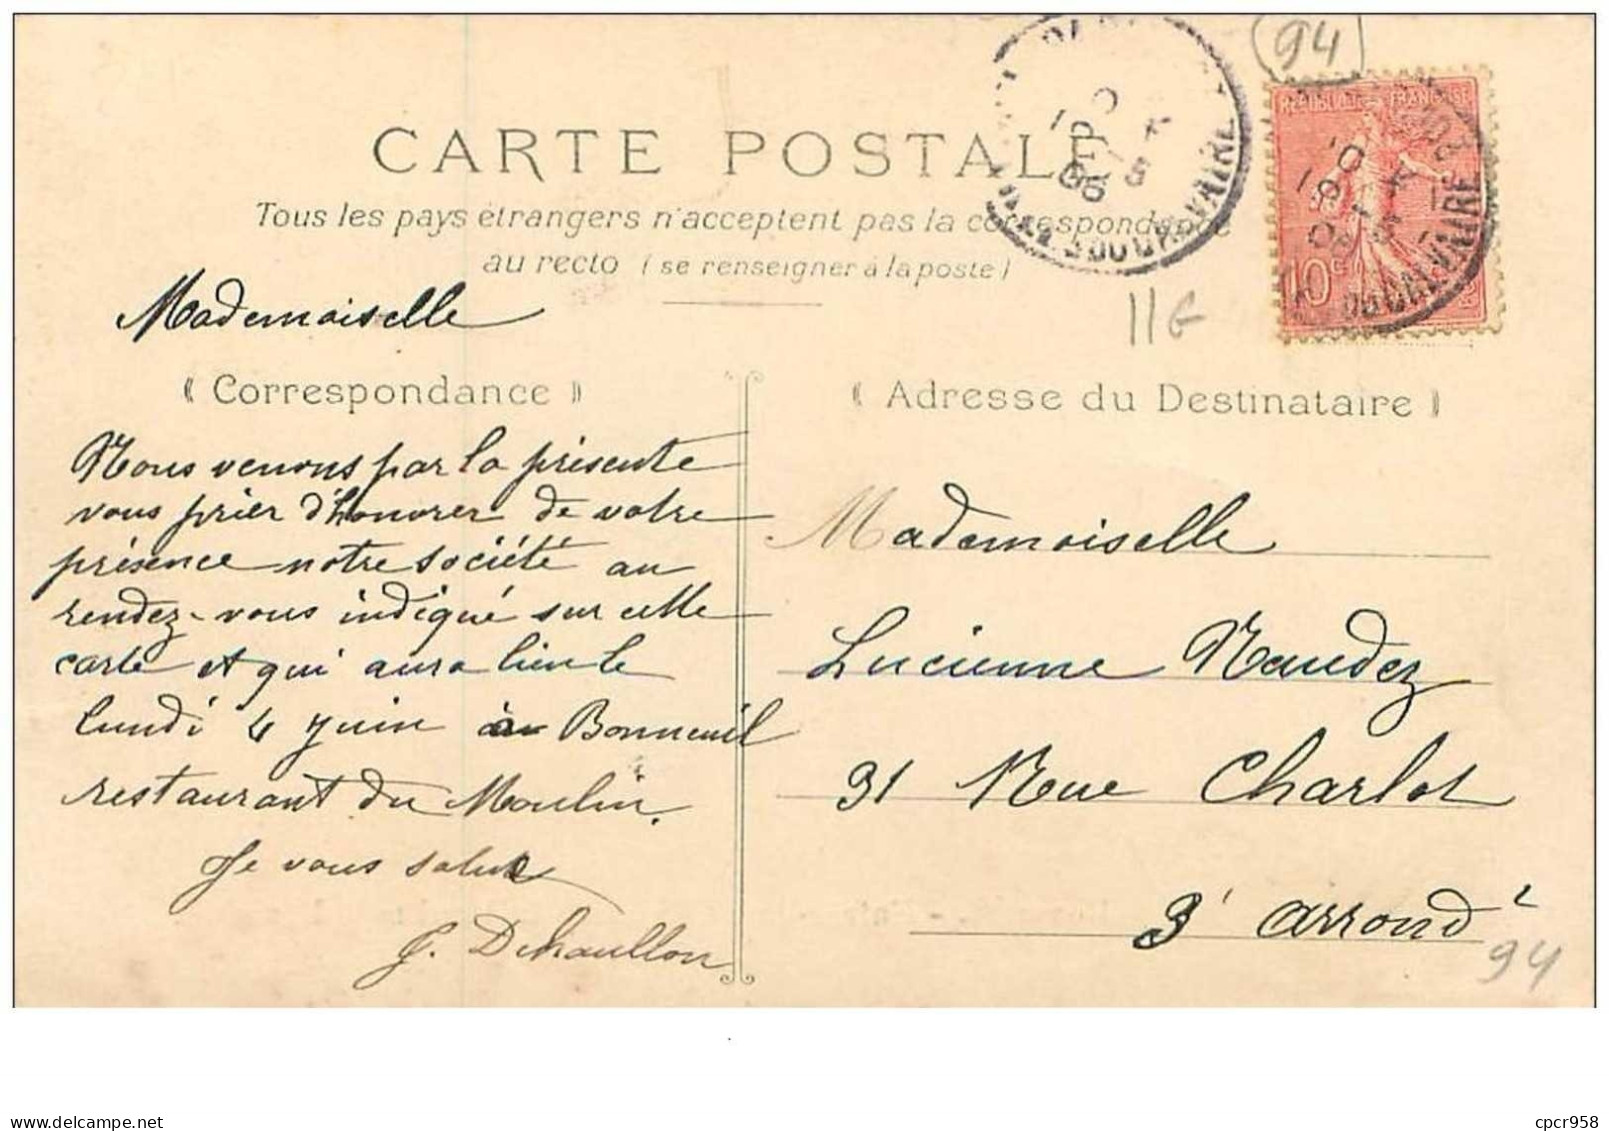 94
CARTE POSTALE
RÉPUBLIQUE FRANÇAISE
10c
Tous les pays étrangers n'acceptent pas la correspondance
au recto (se renseigner à la poste)
11G
Mademoiselle
(Correspondance)
(Adresse du Destinataire)
Nous venons par la présente
vous prier d'honorer de votre
présence notre société au
rendez-vous indiqué sur cette
carte et qui aura lieu le
lundi 4 juin à Bonneuil
restaurant du Moulin.
Je vous salue
G. Dehaullon
Mademoiselle
Lucienne Naudez
31 Rue Charlot
3e arrondt
94
cpcr958